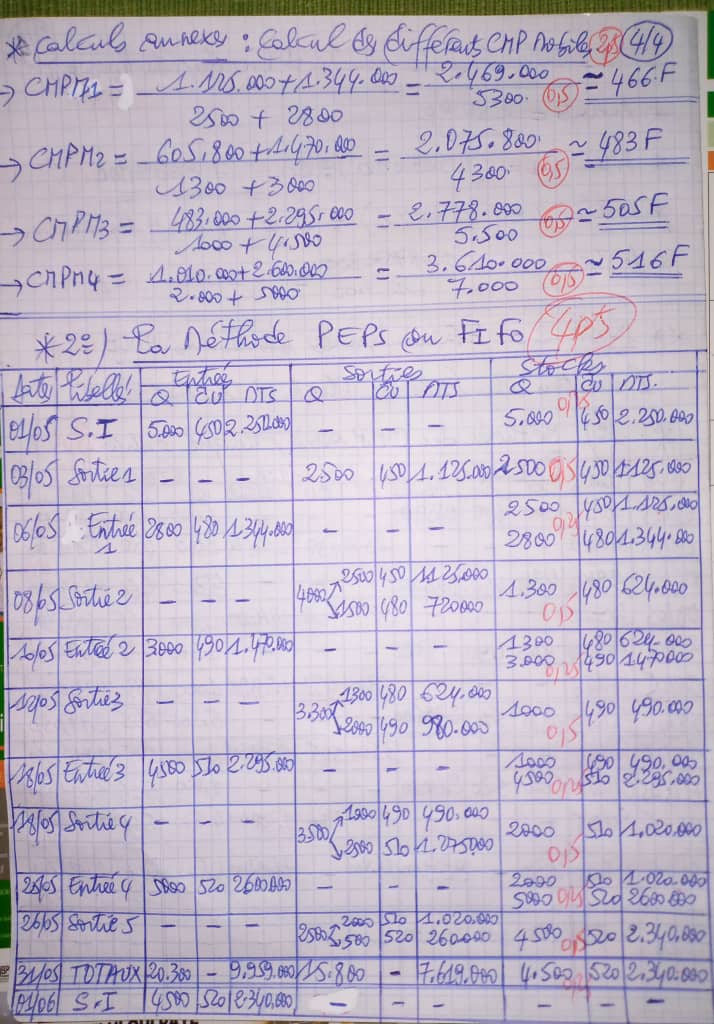 * Calculs annexes : Calcul des différents CMP Mobiles 2,5 4/4
→ CMPM1 = 1.125.000 + 1.344.000 / 2500 + 2800 = 2.469.000 / 5300 0,5 ≈ 466 F
→ CMPM2 = 605.800 + 1.470.000 / 1300 + 3000 = 2.075.800 / 4300 0,5 ≈ 483 F
→ CMPM3 = 483.000 + 2.295.000 / 1000 + 4.500 = 2.778.000 / 5.500 0,5 ≈ 505 F
→ CMPM4 = 1.010.000 + 2.600.000 / 2.000 + 5000 = 3.610.000 / 7.000 0,5 ≈ 516 F
* 2e) La Méthode PEPS ou FIFO 4pts
Dates Libellés Entrée Sorties Stocks
Q CU MTS Q CU MTS Q CU MTS.
01/05 S.I 5.000 450 2.250.000 – – – 5.000 0,25 450 2.250.000
03/05 Sortie 1 – – – 2500 450 1.125.000 2500 0,5 450 1.125.000
2500 450 1.125.000
06/05 Entrée 1 2800 480 1.344.000 – – – 2800 0,25 480 1.344.000
2500 450 1125.000
08/05 Sortie 2 – – – 4000 1500 480 720000 1.300 0,5 480 624.000
1300 480 624.000
10/05 Entrée 2 3000 490 1.470.000 – – – 3.000 0,25 490 1.470.000
1300 480 624.000
12/05 Sortie 3 – – – 3.300 2000 490 980.000 1000 0,5 490 490.000
1000 490 490.000
18/05 Entrée 3 4500 510 2.295.000 – – – 4500 0,25 510 2.295.000
1000 490 490.000
18/05 Sortie 4 – – – 3.500 2500 510 1.275.000 2000 0,5 510 1.020.000
2000 510 1.020.000
25/05 Entrée 4 5000 520 2600000 – – – 5000 0,25 520 2600.000
2000 510 1.020.000
26/05 Sortie 5 – – – 2500 500 520 260.000 4500 0,5 520 2.340.000
31/05 TOTAUX 20.300 – 9.959.000 15.800 – 7.619.000 4.500 0,25 520 2.340.000
01/06 S.I 4500 520 2.340.000 – – – – – –